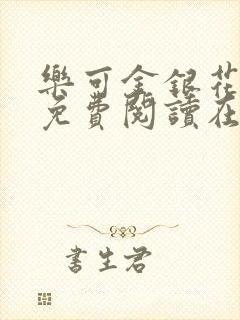 樂可金銀花
免費閱讀在
書生君